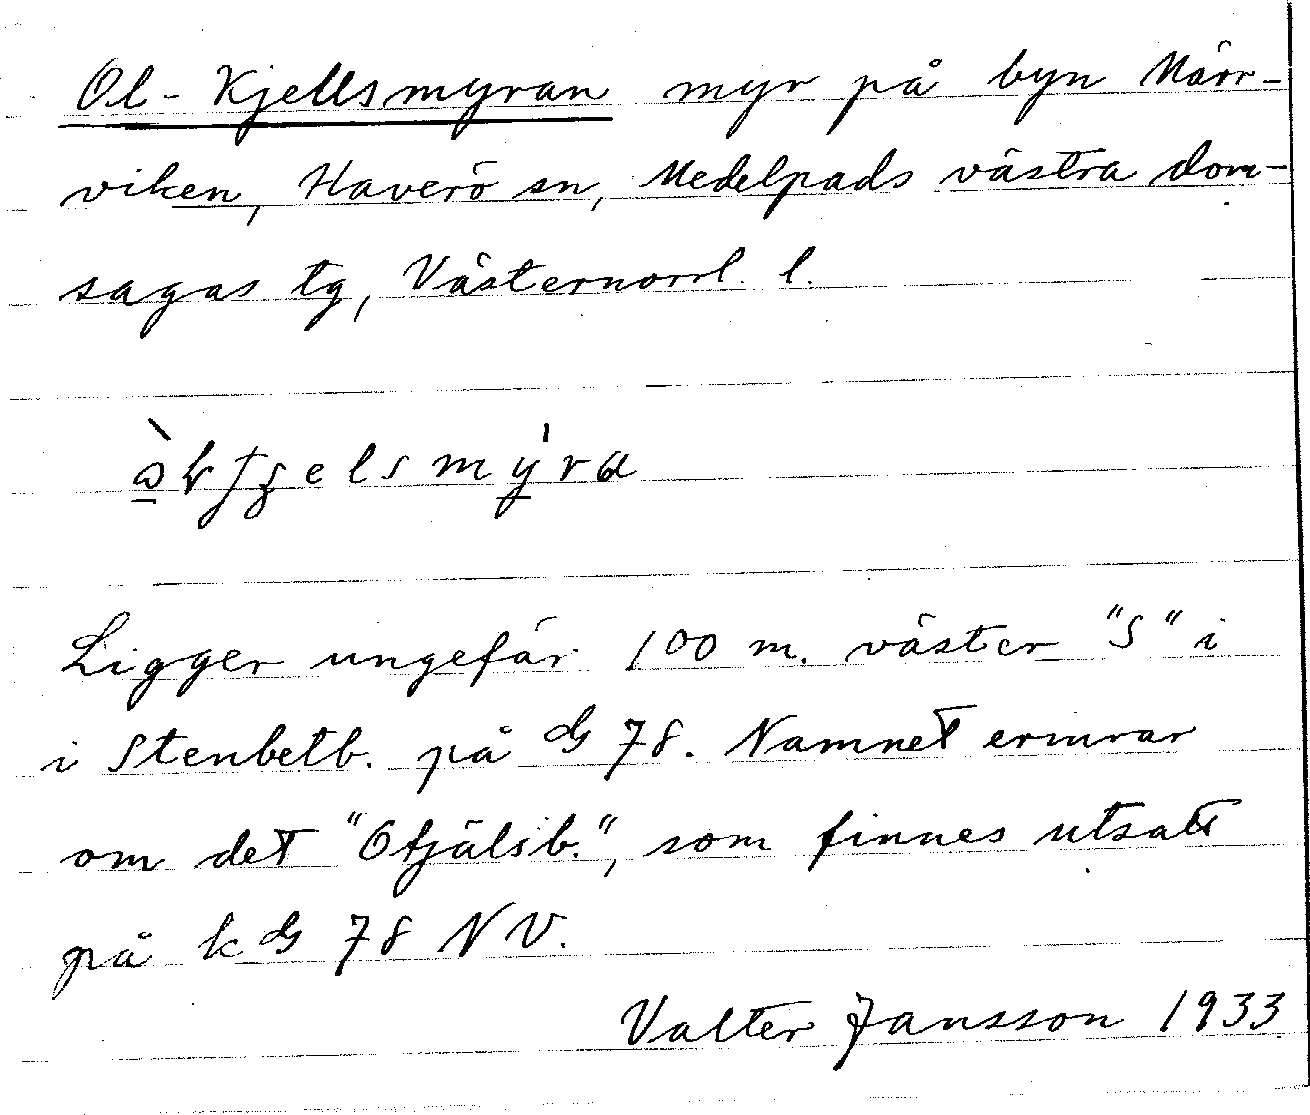 Ol-Kjellsmyran myr på byn Närr-
viken, Haverö sn, Medelpads västra dom-
sagas tg, Västernorrl. l.
Ligger ungefär 100 m. väster "S" i
i Stenbetb. på 78. Namnet erinrar
om det "Otjälsb.", som finnes utsatt
på k 78 NV.
Valter Jansson 1933